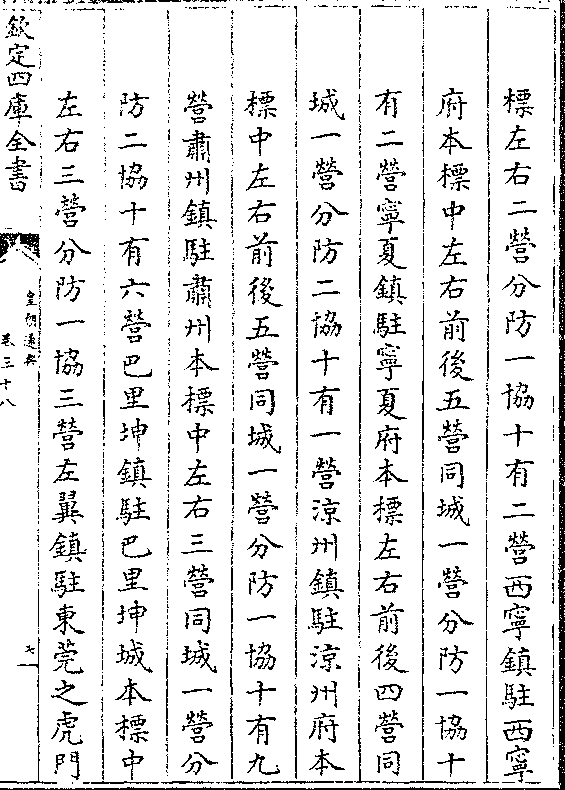 標左右二營分防一協十有二營西寧鎮駐西寧
府本標中左右前後五營同城一營分防一協十
有二營寧夏鎮駐寧夏府本標左右前後四營同
城一營分防二協十有一營涼州鎮駐涼州府本
標中左右前後五營同城一營分防一協十有九
營肅州鎮駐肅州本標中左右三營同城一營分
防二協十有六營巴里坤鎮駐巴里坤城本標中
左右三營分防一協三營左翼鎮駐東莞之虎門
欽定四庫全書
皇朝通典
卷三十八
七